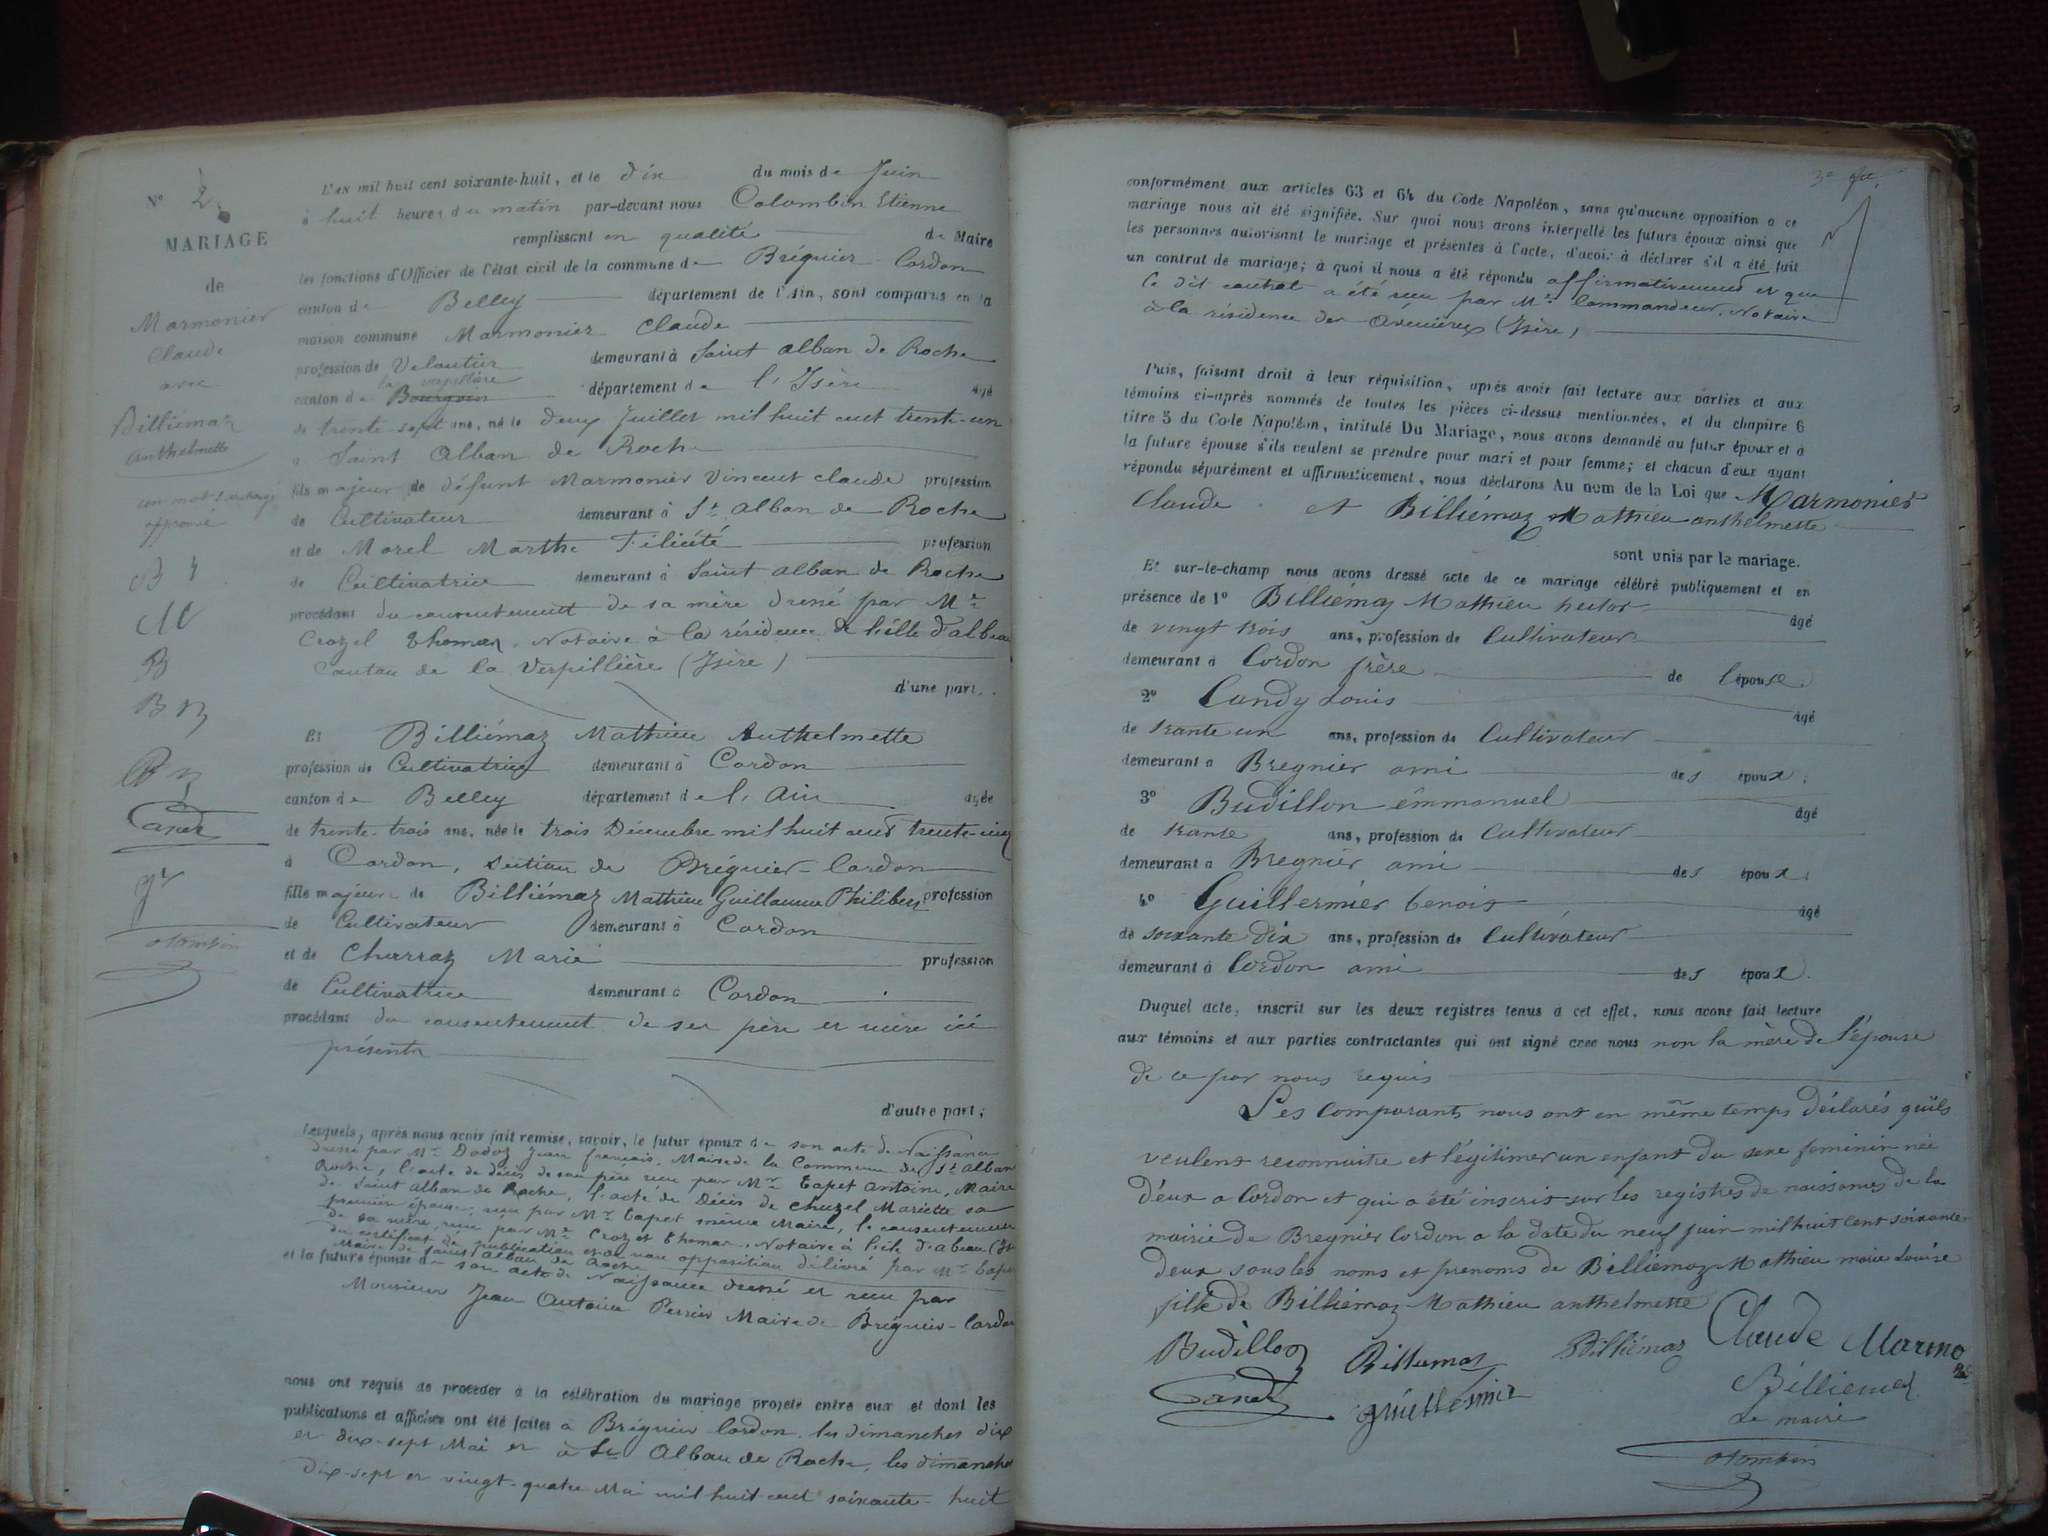 N° 2
MARIAGE
de
Marmonier
Claude
avec
Billiémaz
Anthelmette
un mot surchargé
approuvé
B
M
B
B
Candy
olombin
L'AN mil huit cent soixante-huit, et le dix du mois de Juin
à huit heures du matin par-devant nous Colombin Etienne
remplissant en qualité de Maire
les fonctions d'Officier de l'état civil de la commune de Brégnier-Cordon
canton de Belley département de l'Ain, sont comparus en la
maison commune Marmonier Claude
profession de Veloutier demeurant à Saint Alban de Roche
la verpillière
canton de Bourgoin département de l'Isère âgé
de trente-sept ans, né le deux Juillet mil huit cent trente-un
à Saint Alban de Roche
fils majeur de défunt Marmonier Vincent Claude profession
de Cultivateur demeurant à St Alban de Roche
et de Morel Marthe Félicité profession
de Cultivatrice demeurant à Saint Alban de Roche
procédant du consentement de sa mère dressé par Me
Crozel Thomas, Notaire à la résidence de l'isle d'abeau
Canton de la Verpillière (Isère)
d'une part,
Et Billiémaz Mathieu Anthelmette
profession de Cultivatrice demeurant à Cordon
canton de Belley département de l'Ain âgée
de trente-trois ans, née le trois Décembre mil huit cent trente-cinq
à Cordon, section de Brégnier-Cordon
fille majeure de Billiémaz Mathieu Guillaume Philibert profession
de Cultivateur demeurant à Cordon
et de Charraz Marie profession
de Cultivatrice demeurant à Cordon
procédant du consentement de ses père et mère ici
présents
d'autre part;
Lesquels, après nous avoir fait remise, savoir, le futur époux de son acte de Naissance
dressé par Mr Dodoz Jean françois, Maire de la Commune de St Alban
Roche, l'acte de décès de son père reçu par Mr Tapet Antoine, Maire
de Saint Alban de Roche, l'acte de Décès de Chuzel Mariette sa
première épouse, reçu par Mr Tapet même Maire, le consentement
de sa mère, reçu par Me Crozet Thomas, Notaire à l'isle d'abeau (Isè
du certificat de publication et de non opposition délivré par Mr Tapet
Maire de Saint Alban de Roche
et la future épouse de son acte de Naissance dressé et reçu par
Monsieur Jean Antoine Perrier Maire de Brégnier-Cordon
nous ont requis de procéder à la célébration du mariage projeté entre eux et dont les
publications et affiches ont été faites à Brégnier-Cordon, les dimanches dix
et dix-sept Mai et à St Alban de Roche, les dimanches
dix-sept et vingt-quatre Mai mil huit cent soixante-huit
conformément aux articles 63 et 64 du Code Napoléon, sans qu'aucune opposition à ce
mariage nous ait été signifiée. Sur quoi nous avons interpellé les futurs époux ainsi que
les personnes autorisant le mariage et présentes à l'acte, d'avoir à déclarer s'il a été fait
un contrat de mariage; à quoi il nous a été répondu affirmativement et que
le dit contrat a été reçu par Me Commandeur, Notaire
à la résidence des Avenières (Isère)
Puis, faisant droit à leur réquisition, après avoir fait lecture aux parties et aux
témoins ci-après nommés de toutes les pièces ci-dessus mentionnées, et du chapitre 6
titre 5 du Code Napoléon, intitulé Du Mariage, nous avons demandé au futur époux et à
la future épouse s'ils veulent se prendre pour mari et pour femme; et chacun d'eux ayant
répondu séparément et affirmativement, nous déclarons Au nom de la Loi que Marmonier
Claude et Billiémaz Mathieu anthelmette
sont unis par le mariage.
Et sur-le-champ nous avons dressé acte de ce mariage célébré publiquement et en
présence de 1° Billiémaz Mathieu hector âgé
de vingt trois ans, profession de Cultivateur
demeurant à Cordon frère de l'épouse.
2° Candy Louis âgé
de trante un ans, profession de Cultivateur
demeurant à Bregnier ami des époux;
3° Budillon émmanuel âgé
de trante ans, profession de Cultivateur
demeurant à Bregnier ami des époux;
4° Guillermier benoit âgé
de soixante dix ans, profession de Cultivateur
demeurant à Cordon ami des époux.
Duquel acte, inscrit sur les deux registres tenus à cet effet, nous avons fait lecture
aux témoins et aux parties contractantes qui ont signé avec nous non la mère de l'épouse
de ce par nous requis
Les Comparants nous ont en même temps déclarés qu'ils
veulent reconnaitre et légitimer un enfant du sexe feminin née
d'eux a Cordon et qui a été inscrit sur les registres de naissances de la
mairie de Bregnier Cordon a la date du neuf juin mil huit cent soixante
deux sous les noms et prenoms de Billiémaz Mathieu marie Louise
fille de Billiémaz Mathieu anthelmette
Budillon Billiemaz Billiémaz Claude Marmo
Candy guillermier Billiemaz
Le maire
olombin